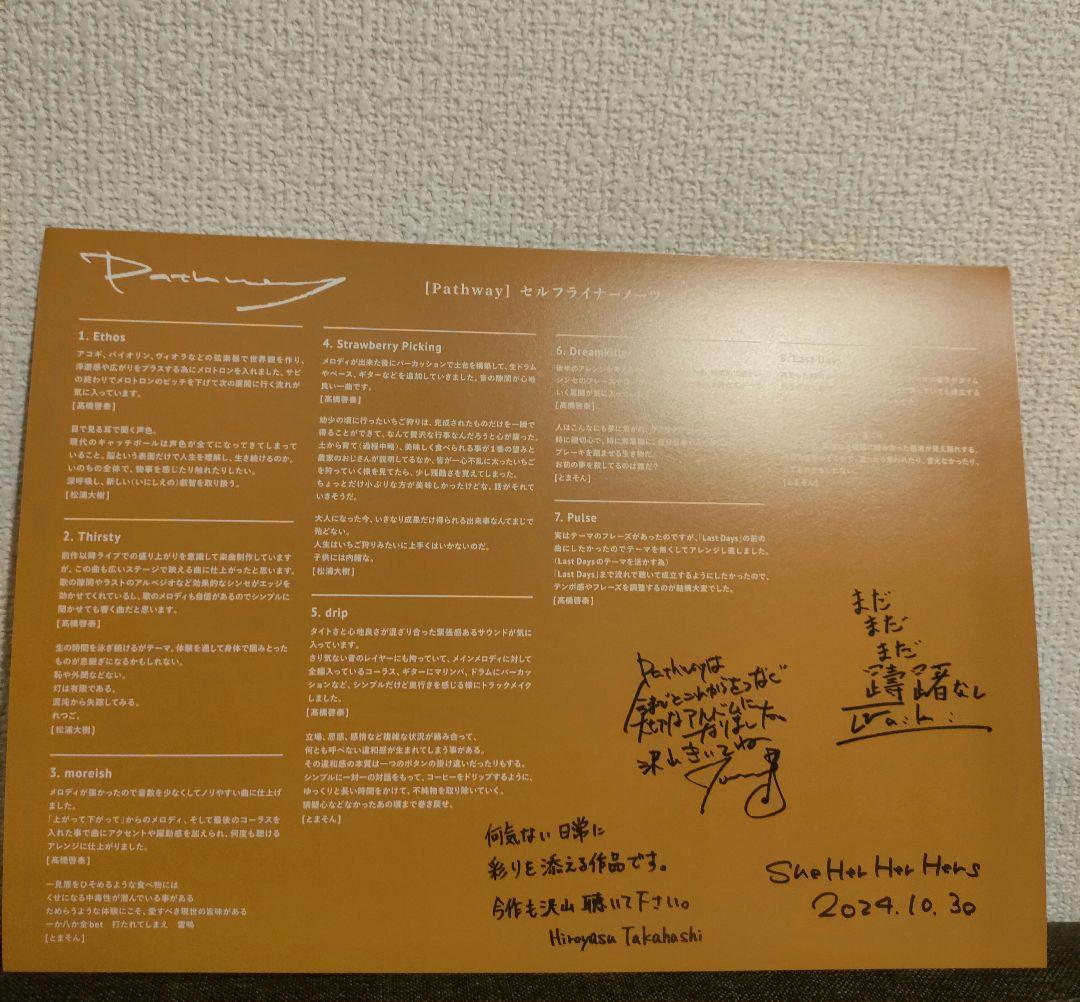 Pathway
[Pathway] セルフライナーノーツ
1. Ethos
アコギ、バイオリン、ヴィオラなどの弦楽器で世界観を作り、
浮遊感や広がりをプラスする為にメロトロンを入れました。サビ
の終わりでメロトロンのピッチを下げて次の展開に行く流れが
気に入っています。
[髙橋啓泰]
目で見る耳で聞く声色。
現代のキャッチボールは声色が全てになってきてしまって
いること。脳という表面だけで人生を理解し、生き続けるのか。
いのちの全体で、物事を感じたり触れたりしたい。
深呼吸し、新しい(いにしえの)叡智を取り扱う。
[松浦大樹]
2. Thirsty
前作以降ライブでの盛り上がりを意識して楽曲制作しています
が、この曲も広いステージで映える曲に仕上がったと思います。
歌の隙間やラストのアルペジオなど効果的なシンセがエッジを
効かせてくれているし、歌のメロディも自信があるのでシンプルに
聞かせても響く曲だと思います。
[髙橋啓泰]
生の時間を泳ぎ続けるがテーマ。体験を通して身体で掴みとった
ものが息継ぎになるかもしれない。
恥や外聞などない。
灯は有限である。
混沌から失踪してみる。
れつご。
[松浦大樹]
3. moreish
メロディが強かったので音数を少なくしてノリやすい曲に仕上げ
ました。
「上がって下がって」からのメロディ、そして最後のコーラスを
入れた事で曲にアクセントや躍動感を加えられ、何度も聴ける
アレンジに仕上がりました。
[髙橋啓泰]
一見眉をひそめるような食べ物には
くせになる中毒性が潜んでいる事がある
ためらうような体験にこそ、愛すべき現世の旨味がある
一か八か全bet 打たれてしまえ 雷鳴
[とまそん]
4. Strawberry Picking
メロディが出来た後にパーカッションで土台を構築して、生ドラム
やベース、ギターなどを追加していきました。音の隙間が心地
良い一曲です。
[髙橋啓泰]
幼少の頃に行ったいちご狩りは、完成されたものだけを一瞬で
得ることができて、なんて贅沢な行事なんだろうと心が躍った。
土から育て(過程中略)、美味しく食べられる事が1番の望みと
農家のおじさんが説明してるなか、皆が一心不乱に大ったいちご
を狩っていく様を見てたら、少し残酷さを覚えてしまった。
ちょっとだけ小ぶりな方が美味しかったけどな。話がそれて
いきそうだ。
大人になった今、いきなり成果だけ得られる出来事なんてまじで
殆どない。
人生はいちご狩りみたいに上手くはいかないのだ。
子供には内緒な。
[松浦大樹]
5. drip
タイトさと心地良さが混ざり合った緊張感あるサウンドが気に
入っています。
さり気ない音のレイヤーにも拘っていて、メインメロディに対して
全編入っているコーラス、ギターにマリンバ、ドラムにパーカッ
ションなど、シンプルだけど奥行きを感じる様にトラックメイク
しました。
[髙橋啓泰]
立場、思惑、感情など複雑な状況が絡み合って、
何とも呼べない違和感が生まれてしまう事がある。
その違和感の本質は一つのボタンの掛け違いだったりもする。
シンプルに一対一の対話をもって、コーヒーをドリップするように、
ゆっくりと長い時間をかけて、不純物を取り除いていく。
猜疑心などなかったあの頃まで巻き戻せ。
[とまそん]
6. Dreamkiller
[髙橋啓泰]
人はこんなにも夢に
時に親切心で、時に無意識に
ブレーキを踏ませる生き物だ。
お前の夢を殺してるのは誰だ?
[とまそん]
7. Pulse
実はテーマのフレーズがあったのですが、「Last Days」の前の
曲にしたかったのでテーマを無くしてアレンジし直しました。
(Last Daysのテーマを活かす為)
「Last Days」まで流れで聴いて成立するようにしたかったので、
テンポ感やフレーズを調整するのが結構大変でした。
[髙橋啓泰]
8. Last Da
[とまそん]
まだ
まだ
まだ
躊躇なし
Pathwayは
今までとこれからをつなぐ
大切なアルバムに
なりました。
沢山きいてね
何気ない日常に
彩りを添える作品です。
今作も沢山聴いて下さい。
Hiroyasu Takahashi
She Her Her Hers
2024.10.30